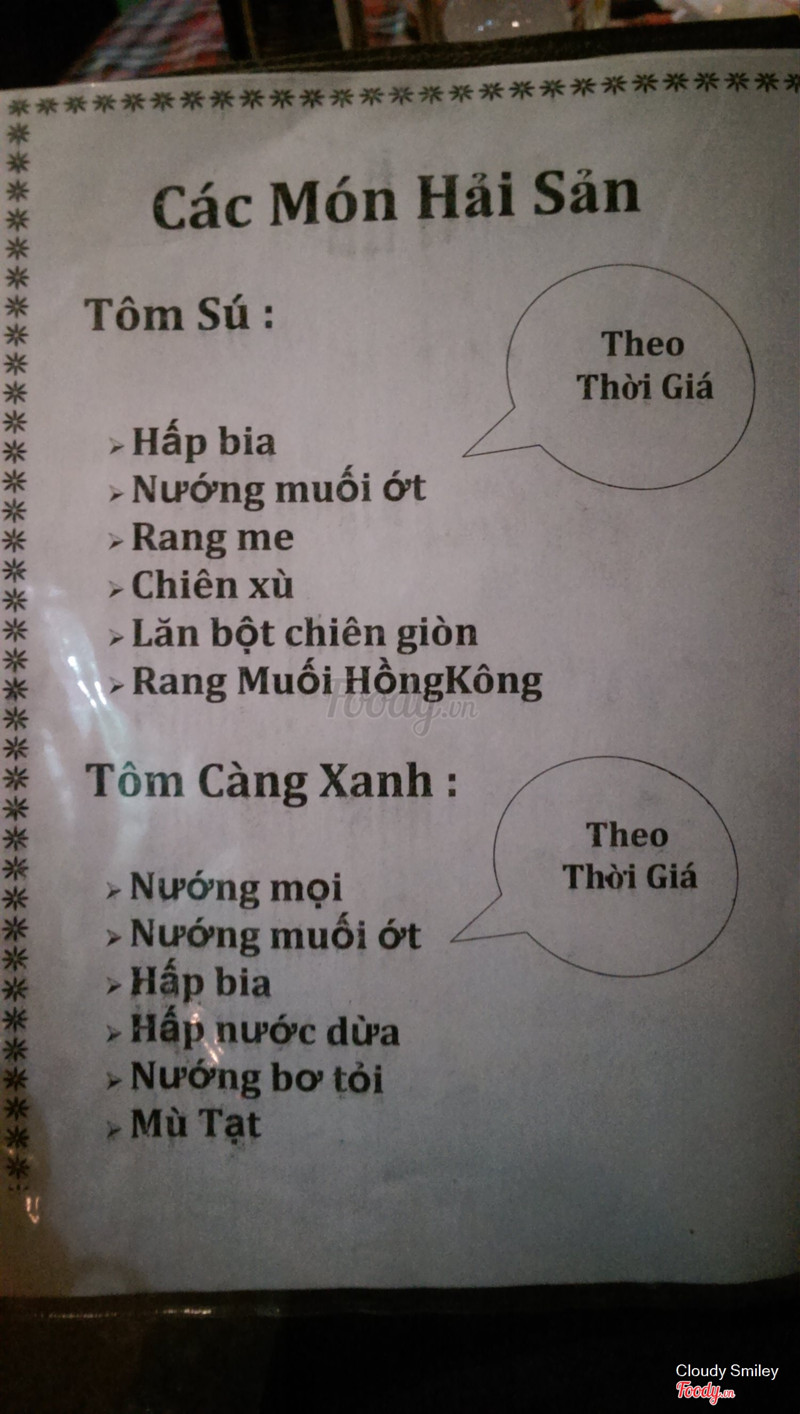 Các Món Hải Sản
Tôm Sú :
Theo
Thời Giá
➢ Hấp bia
➢ Nướng muối ớt
➢ Rang me
➢ Chiên xù
➢ Lăn bột chiên giòn
➢ Rang Muối HồngKông
Foody.vn
Tôm Càng Xanh :
Theo
Thời Giá
➢ Nướng mọi
➢ Nướng muối ớt
➢ Hấp bia
➢ Hấp nước dừa
➢ Nướng bơ tỏi
➢ Mù Tạt
Cloudy Smiley
Foody.vn